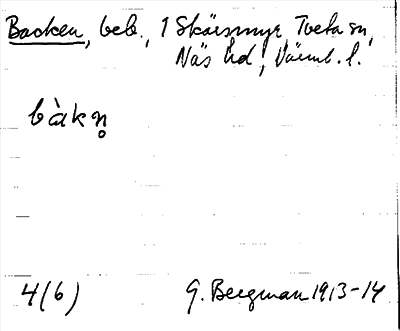 Backen, beb., 1 Skärsmyr Tveta sn,
Näs hd, Värml. l.
bàkn̥
4(6) G. Bergman 1913-14